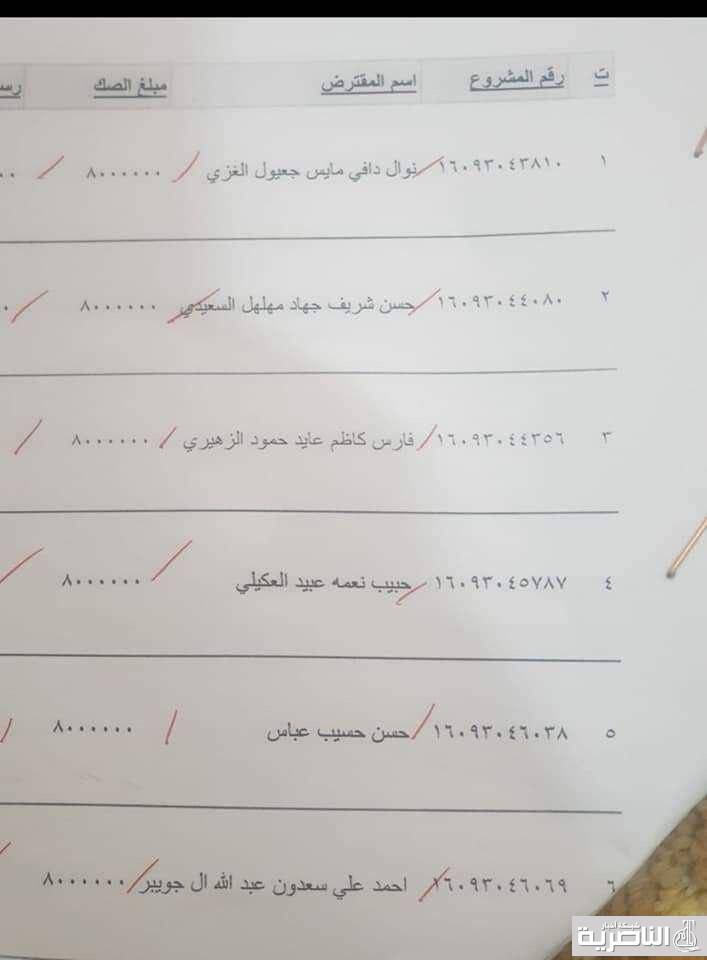 ت رقم المشروع اسم المقترض مبلغ الصك
١ ١٦٠٩٣٠٤٣٨١٠ نوال دافي مايس جعيول الغزي ٨٠٠٠٠٠٠
٢ ١٦٠٩٣٠٤٤٠٨٠ حسن شريف جهاد مهلهل السعيدي ٨٠٠٠٠٠٠
٣ ١٦٠٩٣٠٤٤٣٥٦ فارس كاظم عايد حمود الزهيري ٨٠٠٠٠٠٠
٤ ١٦٠٩٣٠٤٥٧٨٧ حبيب نعمه عبيد العكيلي ٨٠٠٠٠٠٠
٥ ١٦٠٩٣٠٤٦٠٣٨ حسن حسيب عباس ٨٠٠٠٠٠٠
٦ ١٦٠٩٣٠٤٦٠٦٩ احمد علي سعدون عبد الله ال جويبر ٨٠٠٠٠٠٠
شبكة أخبار
الناصرية